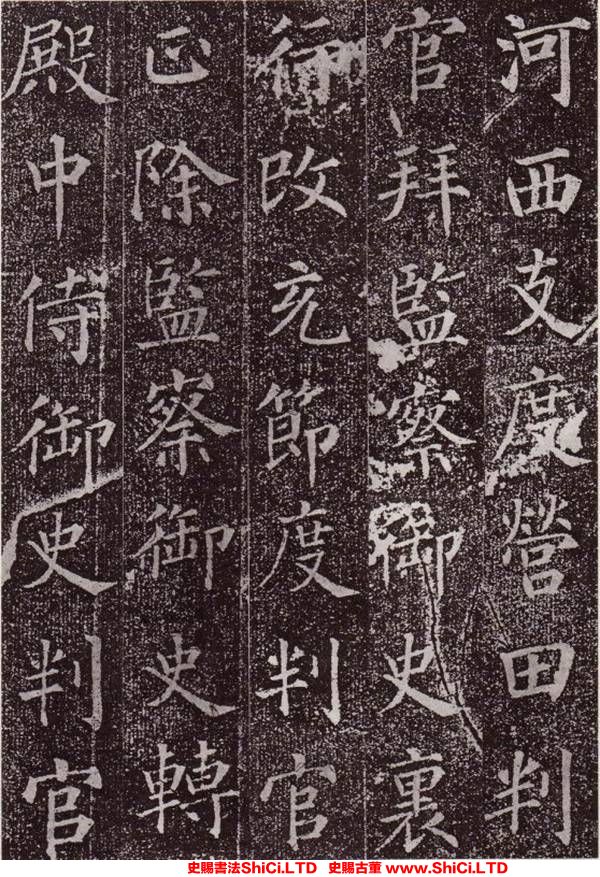 河西支度營田判
官拜監察御史裏
行改充節度判官
正除監察御史轉
殿中侍御史判官
史賜書法ShiCi.LTD 史賜古董 www.ShiCi.LTD